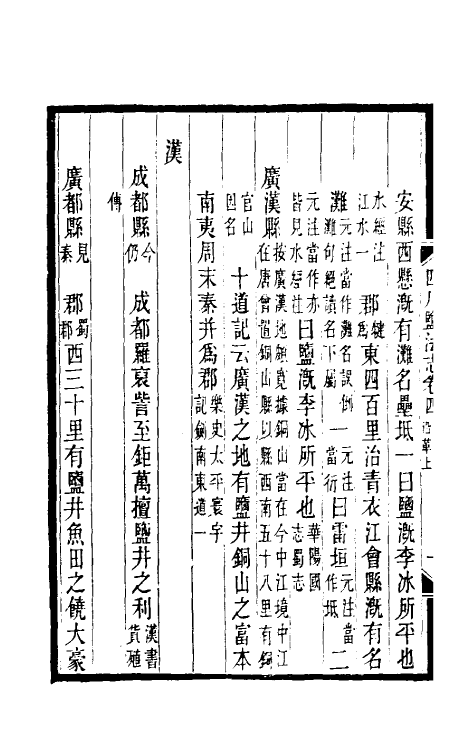 安縣西懸溉有灘名壘坻一曰鹽溉李冰所平也
水經注江水一 郡犍為東四百里治青衣江會縣溉有名
灘元注當作灘名誤倒灘句絕讀名下屬一元注當衍曰雷垣元注當作坻二
元注當作亦皆見水經注曰鹽溉李冰所平也華陽國志蜀志
廣漢縣按廣漢地頗寬據銅山當在今中江境中江在唐曾置銅山縣以縣西南五十八里有銅
官山因名 十道記云廣漢之地有鹽井銅山之富本
南夷周末秦并為郡樂史太平寰宇記劍南東道一
漢
成都縣今仍 成都羅裒訾至鉅萬擅鹽井之利漢書貨殖
傳
廣都縣見秦 郡蜀郡西三十里有鹽井魚田之饒大豪
四川鹽法志卷四 沿革上 一